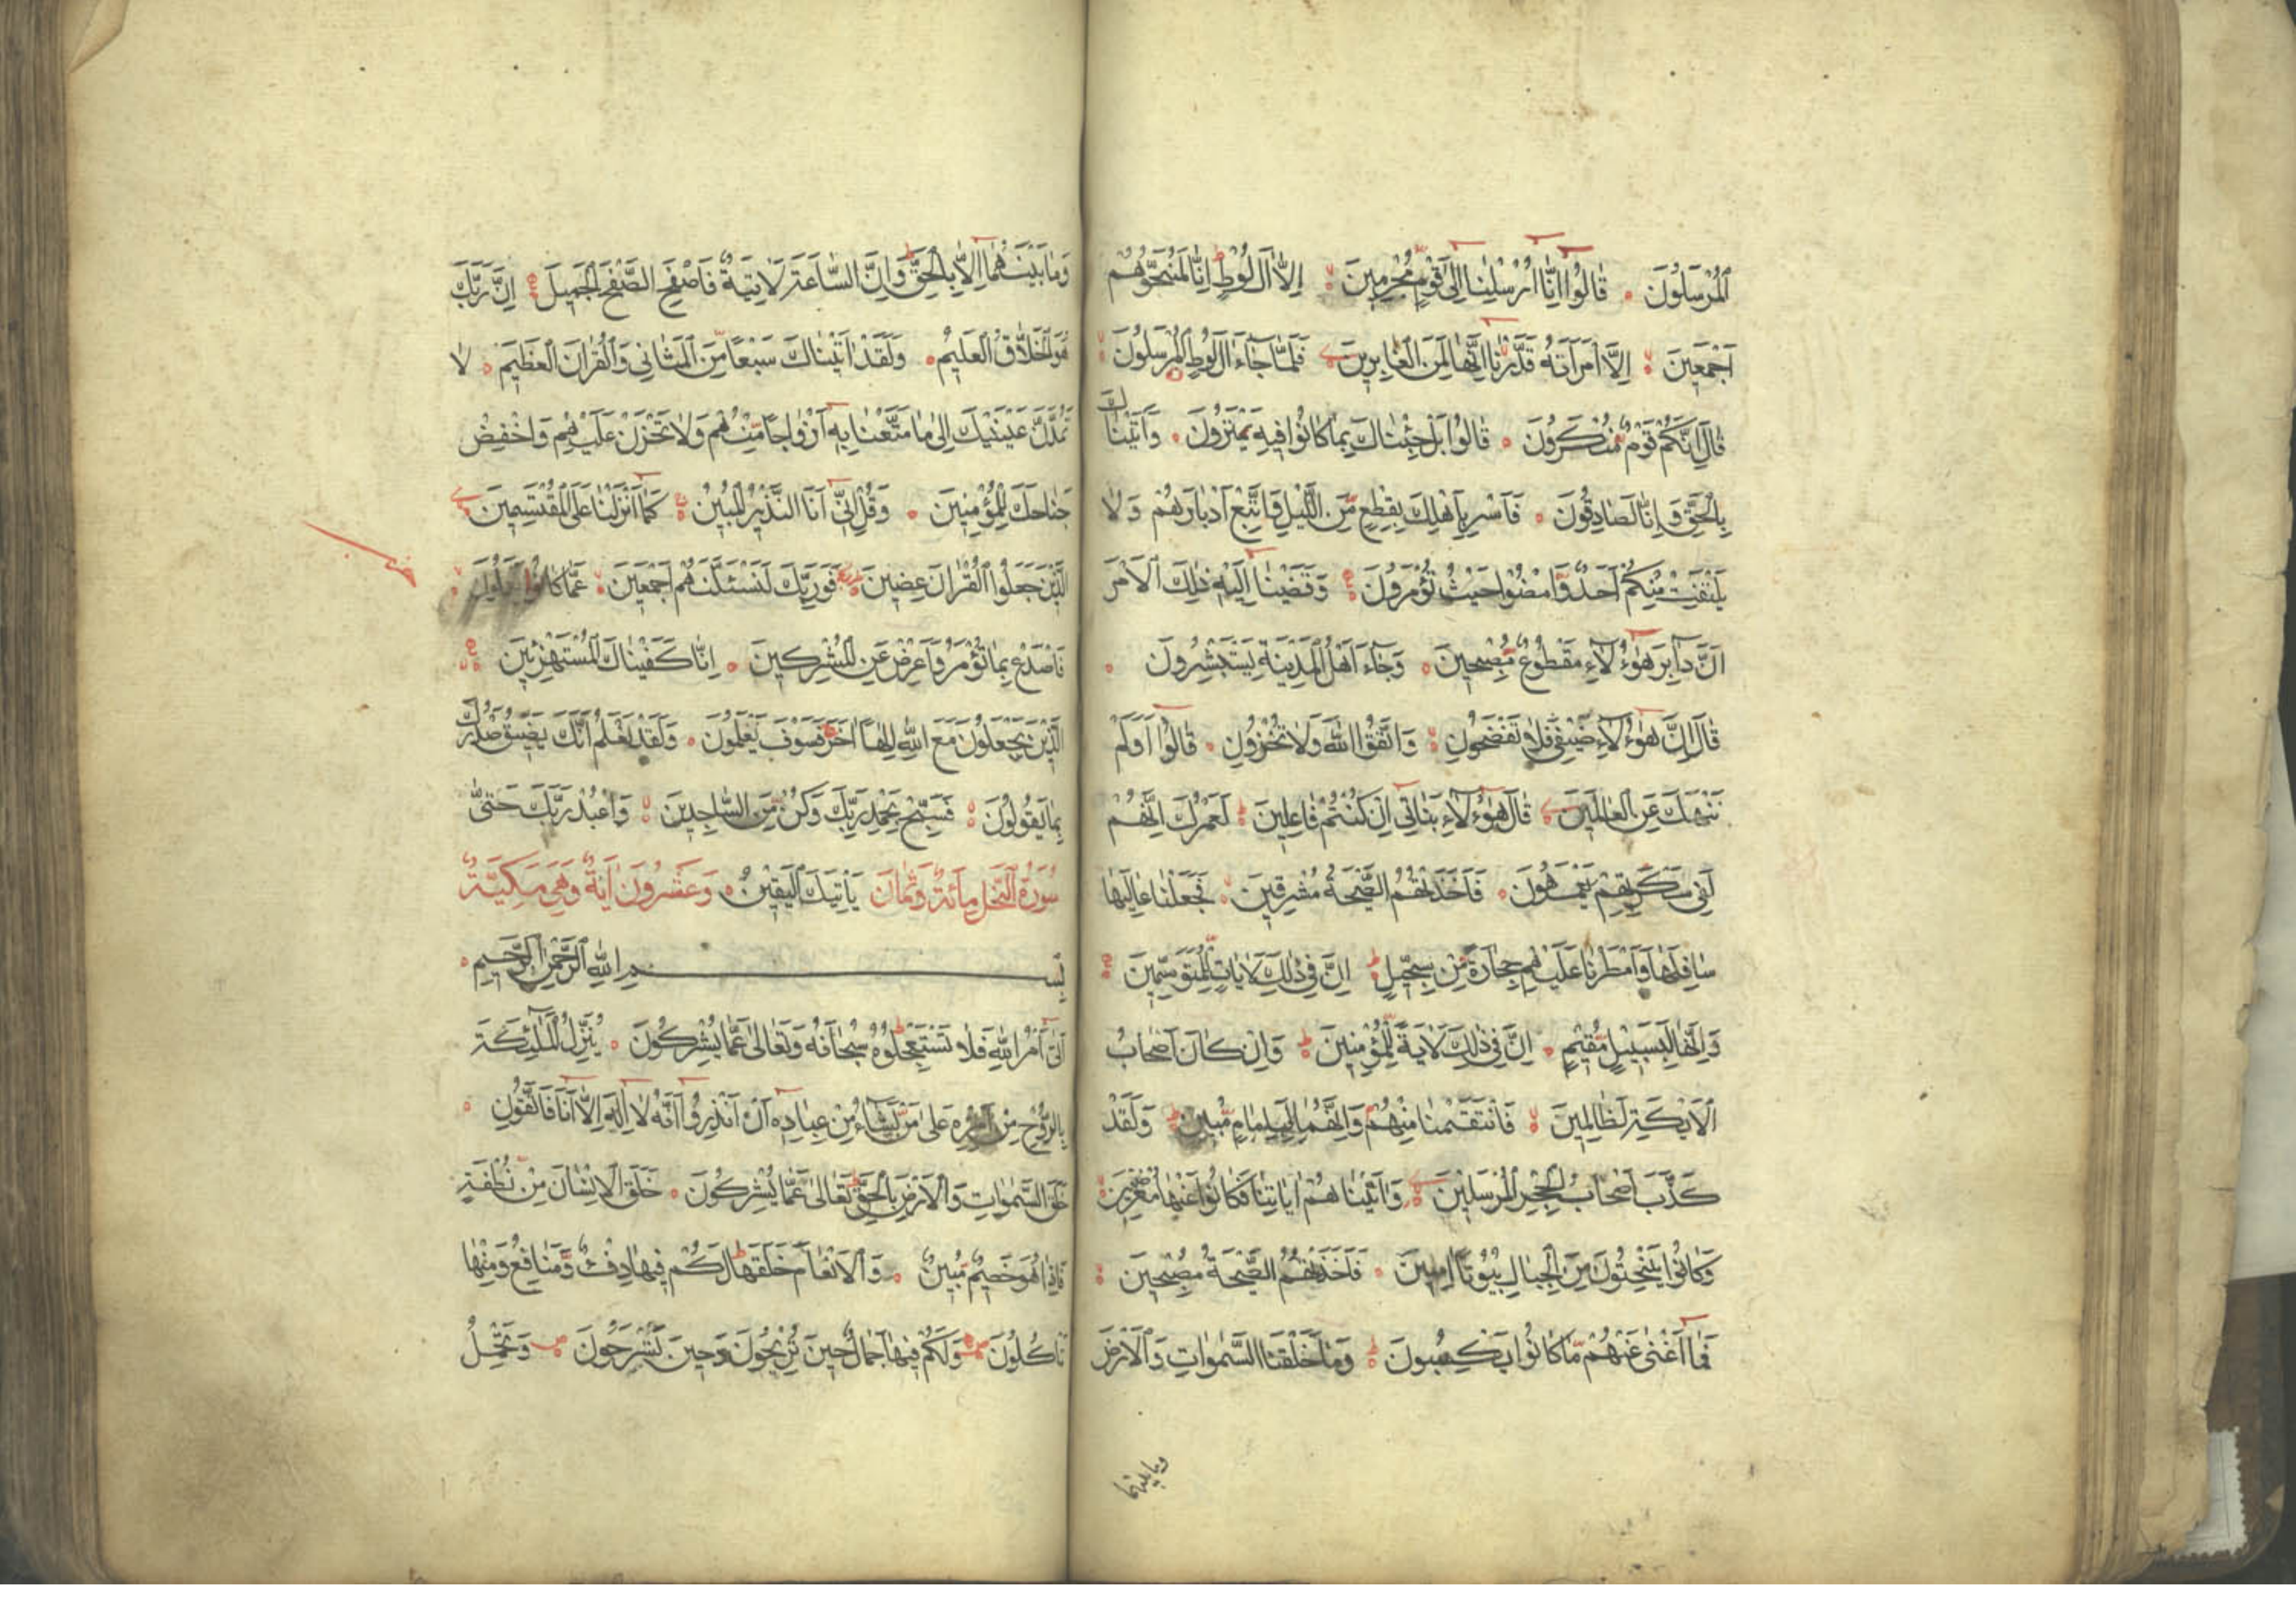 ٱلْمُرْسَلُونَ قَالُوٓا اِنَّآ اُرْسِلْنَآ اِلٰى قَوْمٍ مُّجْرِمِينَ اِلَّآ اٰلَ لُوطٍ اِنَّا لَمُنَجُّوهُمْ
اَجْمَعِينَ اِلَّا امْرَاَتَهُ قَدَّرْنَآ اِنَّهَا لَمِنَ الْغَابِرِينَ فَلَمَّا جَآءَ اٰلَ لُوطٍ الْمُرْسَلُونَ
قَالَ اِنَّكُمْ قَوْمٌ مُّنْكَرُونَ قَالُوا بَلْ جِئْنَاكَ بِمَا كَانُوا فِيهِ يَمْتَرُونَ وَاَتَيْنَاكَ
بِالْحَقِّ وَاِنَّا لَصَادِقُونَ فَاَسْرِ بِاَهْلِكَ بِقِطْعٍ مِّنَ اللَّيْلِ وَاتَّبِعْ اَدْبَارَهُمْ وَلَا
يَلْتَفِتْ مِنْكُمْ اَحَدٌ وَّامْضُوا حَيْثُ تُؤْمَرُونَ وَقَضَيْنَآ اِلَيْهِ ذٰلِكَ الْاَمْرَ
اَنَّ دَابِرَ هٰٓؤُلَآءِ مَقْطُوعٌ مُّصْبِحِينَ وَجَآءَ اَهْلُ الْمَدِينَةِ يَسْتَبْشِرُونَ
قَالَ اِنَّ هٰٓؤُلَآءِ ضَيْفِى فَلَا تَفْضَحُونِ وَاتَّقُوا اللّٰهَ وَلَا تُخْزُونِ قَالُوٓا اَوَلَمْ
نَنْهَكَ عَنِ الْعَالَمِينَ قَالَ هٰٓؤُلَآءِ بَنَاتِىٓ اِنْ كُنْتُمْ فَاعِلِينَ لَعَمْرُكَ اِنَّهُمْ
لَفِى سَكْرَتِهِمْ يَعْمَهُونَ فَاَخَذَتْهُمُ الصَّيْحَةُ مُشْرِقِينَ فَجَعَلْنَا عَالِيَهَا
سَافِلَهَا وَاَمْطَرْنَا عَلَيْهِمْ حِجَارَةً مِّنْ سِجِّيلٍ اِنَّ فِى ذٰلِكَ لَاٰيَاتٍ لِّلْمُتَوَسِّمِينَ
وَاِنَّهَا لَبِسَبِيلٍ مُّقِيمٍ اِنَّ فِى ذٰلِكَ لَاٰيَةً لِّلْمُؤْمِنِينَ وَاِنْ كَانَ اَصْحَابُ
الْاَيْكَةِ لَظَالِمِينَ فَانْتَقَمْنَا مِنْهُمْ وَاِنَّهُمَا لَبِاِمَامٍ مُّبِينٍ وَلَقَدْ
كَذَّبَ اَصْحَابُ الْحِجْرِ الْمُرْسَلِينَ وَاٰتَيْنَاهُمْ اٰيَاتِنَا فَكَانُوا عَنْهَا مُعْرِضِينَ
وَكَانُوا يَنْحِتُونَ مِنَ الْجِبَالِ بُيُوتًا اٰمِنِينَ فَاَخَذَتْهُمُ الصَّيْحَةُ مُصْبِحِينَ
فَمَآ اَغْنٰى عَنْهُمْ مَّا كَانُوا يَكْسِبُونَ وَمَا خَلَقْنَا السَّمٰوَاتِ وَالْاَرْضَ
وما بينهما
وَمَا بَيْنَهُمَآ اِلَّا بِالْحَقِّ وَاِنَّ السَّاعَةَ لَاٰتِيَةٌ فَاصْفَحِ الصَّفْحَ الْجَمِيلَ اِنَّ رَبَّكَ
هُوَ الْخَلَّاقُ الْعَلِيمُ وَلَقَدْ اٰتَيْنَاكَ سَبْعًا مِّنَ الْمَثَانِى وَالْقُرْاٰنَ الْعَظِيمَ لَا
تَمُدَّنَّ عَيْنَيْكَ اِلٰى مَا مَتَّعْنَا بِهٖٓ اَزْوَاجًا مِّنْهُمْ وَلَا تَحْزَنْ عَلَيْهِمْ وَاخْفِضْ
جَنَاحَكَ لِلْمُؤْمِنِينَ وَقُلْ اِنِّىٓ اَنَا النَّذِيرُ الْمُبِينُ كَمَآ اَنْزَلْنَا عَلَى الْمُقْتَسِمِينَ
الَّذِينَ جَعَلُوا الْقُرْاٰنَ عِضِينَ فَوَرَبِّكَ لَنَسْئَلَنَّهُمْ اَجْمَعِينَ عَمَّا كَانُوا يَعْمَلُونَ
فَاصْدَعْ بِمَا تُؤْمَرُ وَاَعْرِضْ عَنِ الْمُشْرِكِينَ اِنَّا كَفَيْنَاكَ الْمُسْتَهْزِئِينَ
الَّذِينَ يَجْعَلُونَ مَعَ اللّٰهِ اِلٰهًا اٰخَرَ فَسَوْفَ يَعْلَمُونَ وَلَقَدْ نَعْلَمُ اَنَّكَ يَضِيقُ صَدْرُكَ
بِمَا يَقُولُونَ فَسَبِّحْ بِحَمْدِ رَبِّكَ وَكُنْ مِّنَ السَّاجِدِينَ وَاعْبُدْ رَبَّكَ حَتّٰى
سُورَةُ النَّحْلِ مِائَةٌ وَثَمَانَ يَاْتِيَكَ الْيَقِينُ وَعِشْرُونَ اٰيَةً وَهِىَ مَكِّيَّةٌ
بِسْمِ اللّٰهِ الرَّحْمٰنِ الرَّحِيمِ
اَتٰىٓ اَمْرُ اللّٰهِ فَلَا تَسْتَعْجِلُوهُ سُبْحَانَهُ وَتَعَالٰى عَمَّا يُشْرِكُونَ يُنَزِّلُ الْمَلٰٓئِكَةَ
بِالرُّوحِ مِنْ اَمْرِهٖ عَلٰى مَنْ يَّشَآءُ مِنْ عِبَادِهٖٓ اَنْ اَنْذِرُوٓا اَنَّهُ لَآ اِلٰهَ اِلَّآ اَنَا فَاتَّقُونِ
خَلَقَ السَّمٰوَاتِ وَالْاَرْضَ بِالْحَقِّ تَعَالٰى عَمَّا يُشْرِكُونَ خَلَقَ الْاِنْسَانَ مِنْ نُّطْفَةٍ
فَاِذَا هُوَ خَصِيمٌ مُّبِينٌ وَالْاَنْعَامَ خَلَقَهَا لَكُمْ فِيهَا دِفْءٌ وَّمَنَافِعُ وَمِنْهَا
تَاْكُلُونَ وَلَكُمْ فِيهَا جَمَالٌ حِينَ تُرِيحُونَ وَحِينَ تَسْرَحُونَ وَتَحْمِلُ